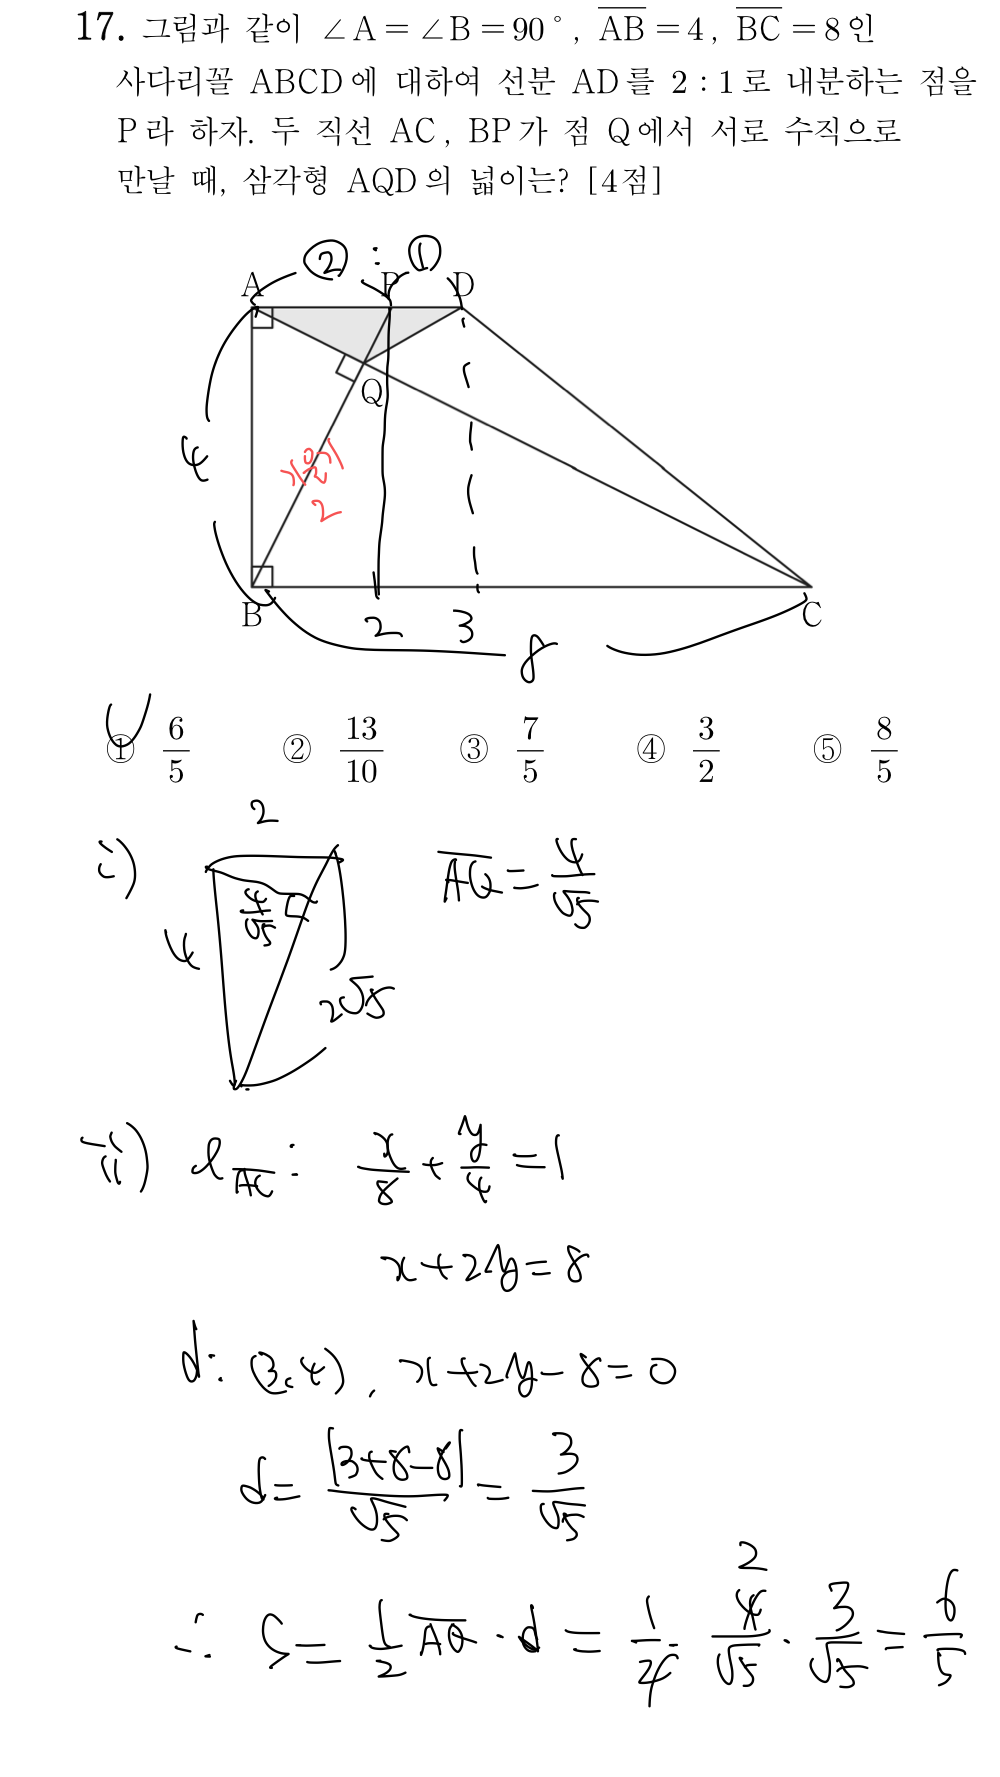 17. 그림과 같이 ∠A=∠B=90°, AB=4, BC=8인
사다리꼴 ABCD에 대하여 선분 AD를 2:1로 내분하는 점을
P라 하자. 두 직선 AC, BP가 점 Q에서 서로 수직으로
만날 때, 삼각형 AQD의 넓이는? [4점]
② : ①
A P D
Q
4
기울기
2
B C
2 3
8
① 6/5 ② 13/10 ③ 7/5 ④ 3/2 ⑤ 8/5
i) 2
AQ = 4/√5
4/√5
4
2√5
ii) l AC : x/8 + y/4 = 1
x+2y=8
d: (3,4), x+2y-8=0
d= |3+8-8|/√5 = 3/√5
∴ S= 1/2 AQ · d = 1/2 · 4/√5 · 3/√5 = 6/5
2